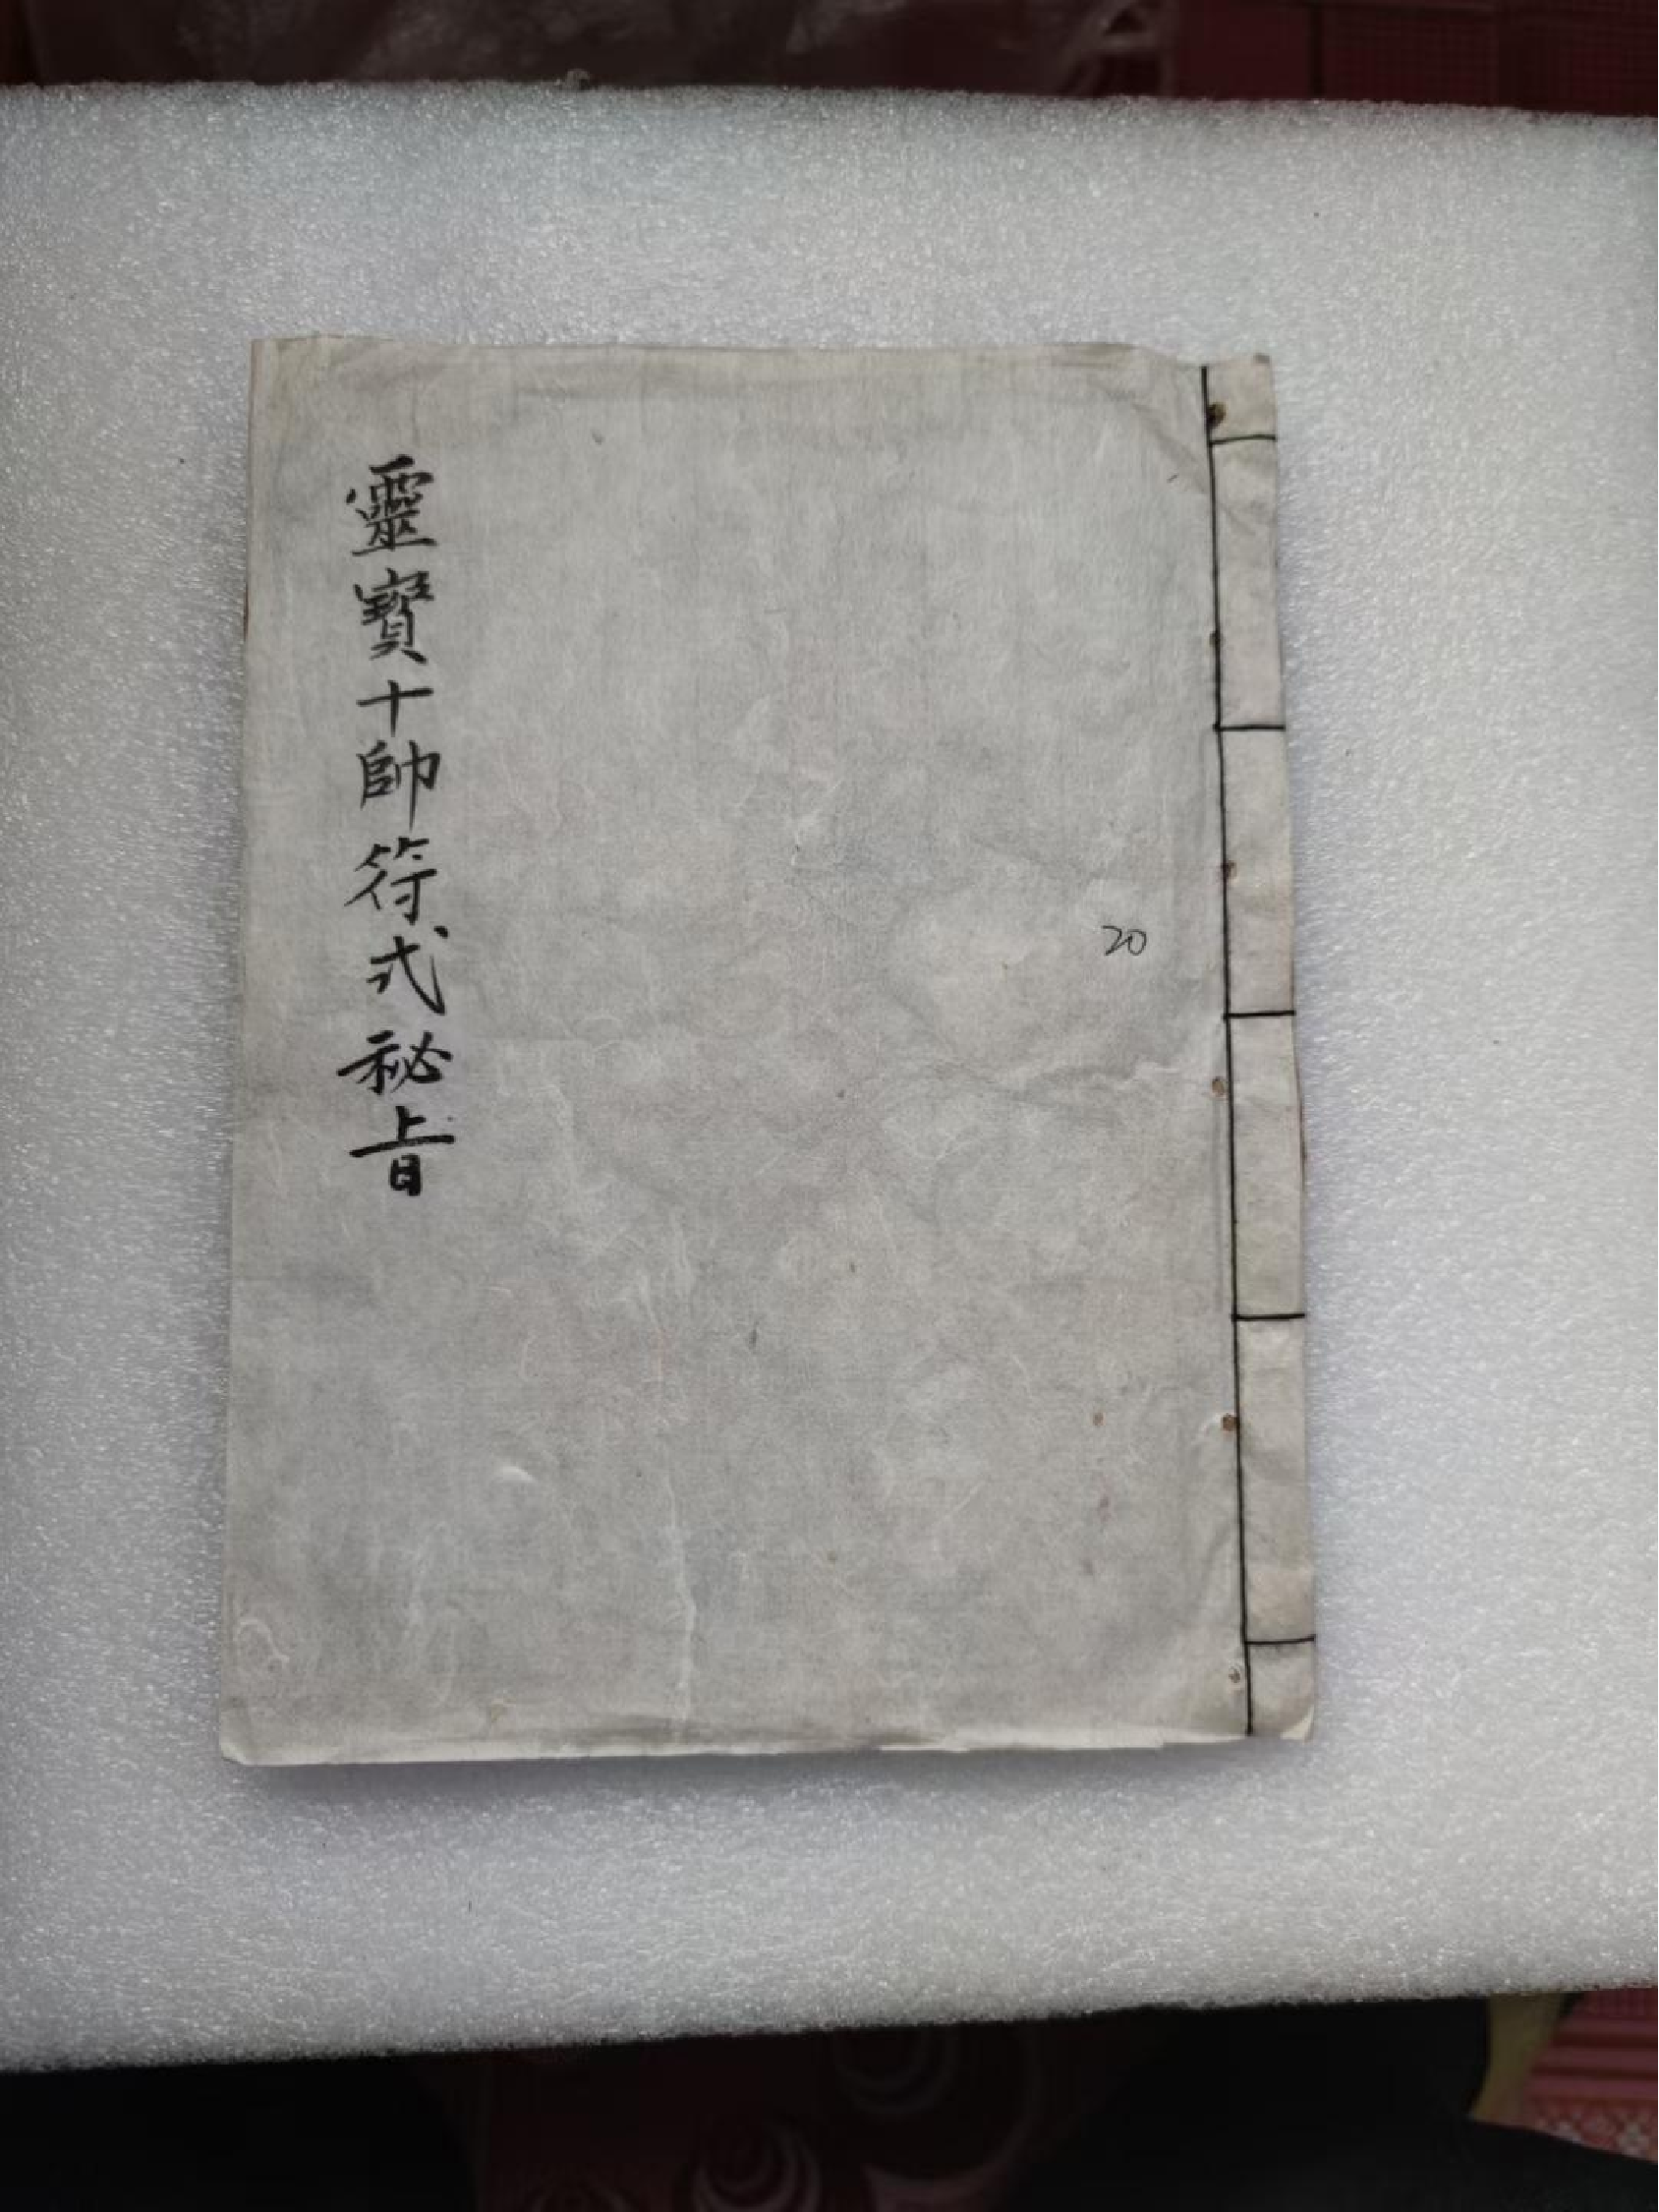 靈寶十帥符式秘旨
20